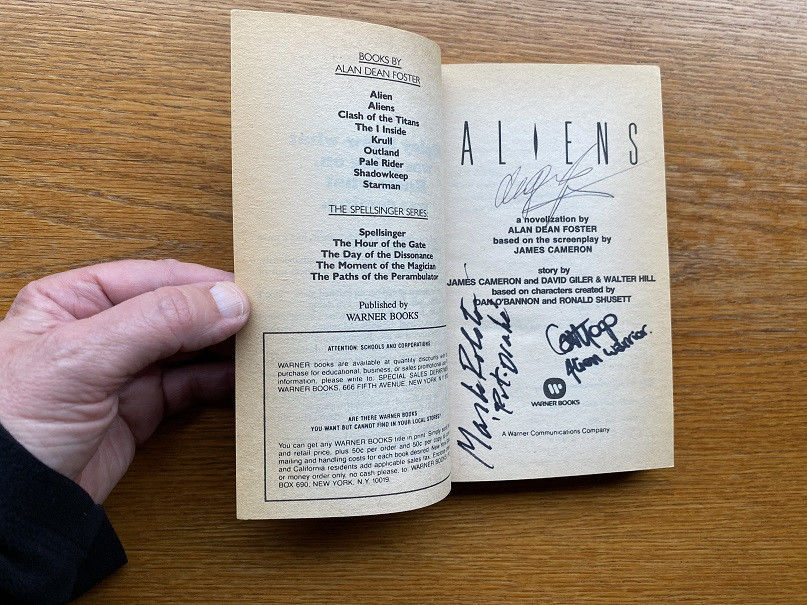 BOOKS BY
ALAN DEAN FOSTER
Alien
Aliens
Clash of the Titans
The I Inside
Krull
Outland
Pale Rider
Shadowkeep
Starman
THE SPELLSINGER SERIES:
Spellsinger
The Hour of the Gate
The Day of the Dissonance
The Moment of the Magician
The Paths of the Perambulator
Published by
WARNER BOOKS
ATTENTION: SCHOOLS AND CORPORATIONS
WARNER books are available at quantity discounts with
purchase for educational, business, or sales promotional use
information, please write to: SPECIAL SALES
WARNER BOOKS, 666 FIFTH AVENUE, NEW YORK N Y
ARE THERE WARNER BOOKS
YOU WANT BUT CANNOT FIND IN YOUR LOCAL STORES?
You can get any WARNER BOOKS title in print. Simply
and retail price, plus 50c per order and 50c per copy
mailing and handling costs for each book desired. New York
and California residents add applicable sales tax.
or money order only, no cash please, to: WARNER BOOKS
BOX 690, NEW YORK, N.Y. 10019.
ALIENS
a novelization by
ALAN DEAN FOSTER
based on the screenplay by
JAMES CAMERON
story by
JAMES CAMERON and DAVID GILER & WALTER HILL
based on characters created by
DAN O'BANNON and RONALD SHUSETT
Mark Rolston
Pvt. Drake
Alien Warrior.
WARNER BOOKS
A Warner Communications Company